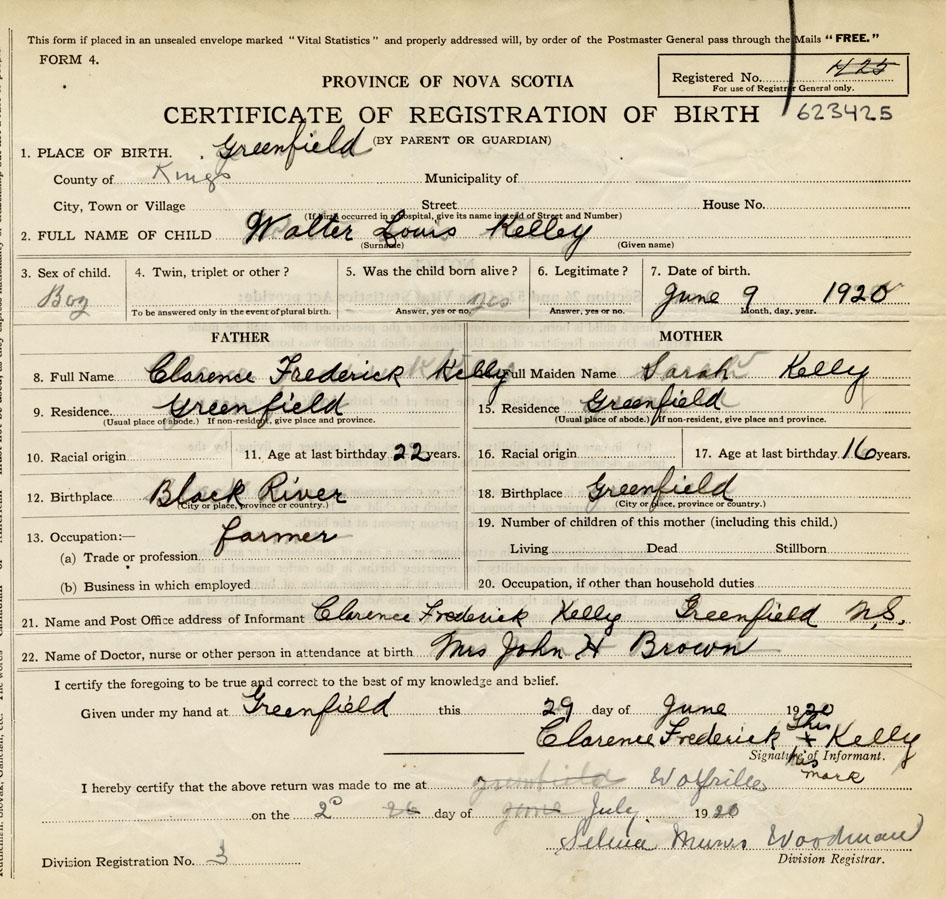 This form if placed in an unsealed envelope marked "Vital Statistics" and properly addressed will, by order of the Postmaster General pass through the Mails "FREE."
FORM 4.
PROVINCE OF NOVA SCOTIA
Registered No. 425
For use of Registrar General only.
CERTIFICATE OF REGISTRATION OF BIRTH
623425
(BY PARENT OR GUARDIAN)
1. PLACE OF BIRTH. Greenfield
County of Kings Municipality of
City, Town or Village Street House No.
(If birth occurred in a hospital, give its name instead of Street and Number)
2. FULL NAME OF CHILD Walter Louis Kelley
(Surname) (Given name)
3. Sex of child. 4. Twin, triplet or other? 5. Was the child born alive? 6. Legitimate? 7. Date of birth.
Boy yes June 9 1920
To be answered only in the event of plural birth. Answer, yes or no. Answer, yes or no. Month, day, year.
FATHER MOTHER
8. Full Name Clarence Frederick Kelly Full Maiden Name Sarah Kelly
9. Residence Greenfield 15. Residence Greenfield
(Usual place of abode.) If non-resident, give place and province. (Usual place of abode.) If non-resident, give place and province.
10. Racial origin 11. Age at last birthday 22 years. 16. Racial origin 17. Age at last birthday 16 years.
12. Birthplace Black River 18. Birthplace Greenfield
(City or place, province or country.) (City or place, province or country.)
13. Occupation:— farmer 19. Number of children of this mother (including this child.)
(a) Trade or profession Living Dead Stillborn
(b) Business in which employed 20. Occupation, if other than household duties
21. Name and Post Office address of Informant Clarence Frederick Kelly Greenfield N.S.
22. Name of Doctor, nurse or other person in attendance at birth Mrs John H Brown
I certify the foregoing to be true and correct to the best of my knowledge and belief.
Given under my hand at Greenfield this 29 day of June 1920
Clarence Frederick his + Kelly
Signature of Informant.
his mark
I hereby certify that the above return was made to me at greenfield Wolfville
on the 2nd 26 day of June July 1920
Munro Woodman
Division Registration No. 3 Division Registrar.